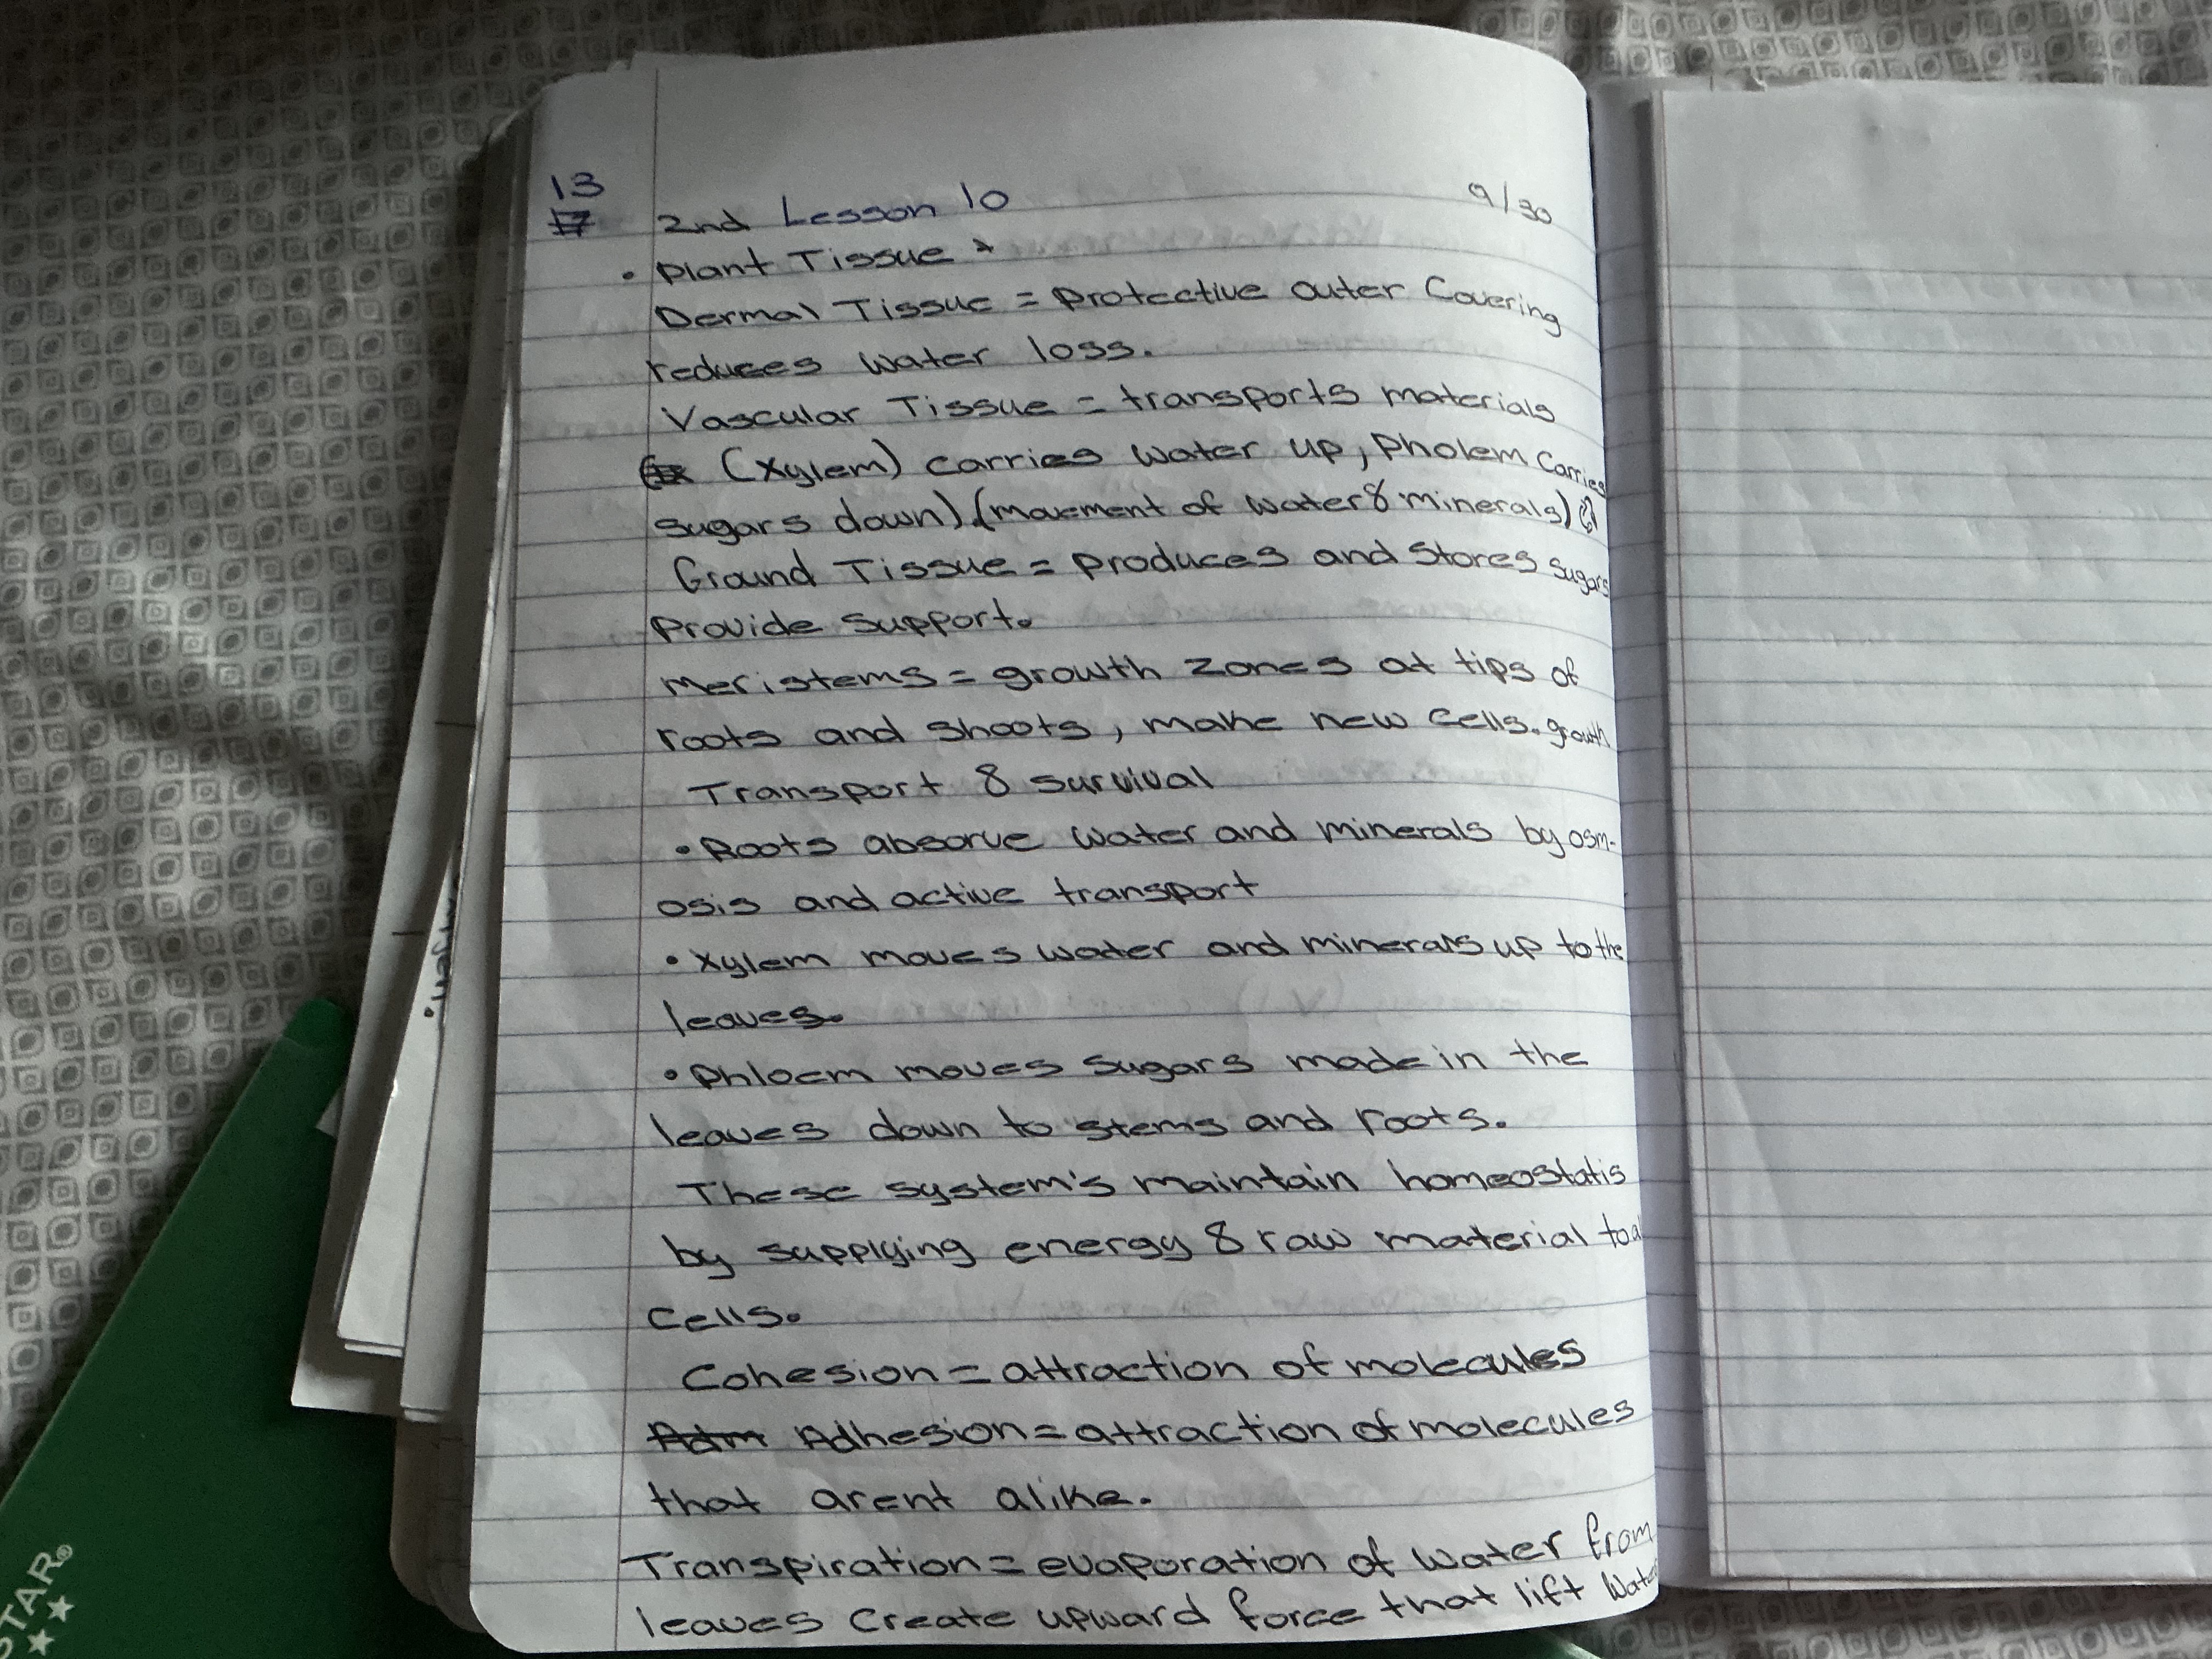 13
17
2nd Lesson 10 9/30
• Plant Tissue *
Dermal Tissue = Protective outer Covering
reduces water loss.
Vascular Tissue = transports materials
(Xylem) carries water up, Pholem Carries
sugars down). (movement of water & minerals)
Ground Tissue = produces and stores sugars
Provide support.
Meristems = growth zones at tips of
roots and shoots, make new cells. growth
Transport & survival
• Roots absorve water and minerals by osm-
osis and active transport
• Xylem moves water and minerals up to the
leaves.
• Phloem moves sugars made in the
leaves down to stems and roots.
These system's maintain homeostatis
by supplying energy & raw material to
cells.
Cohesion = attraction of molecules
Adm Adhesion = attraction of molecules
that arent alike.
Transpiration = evaporation of water from
leaves create upward force that lift water
STAR®